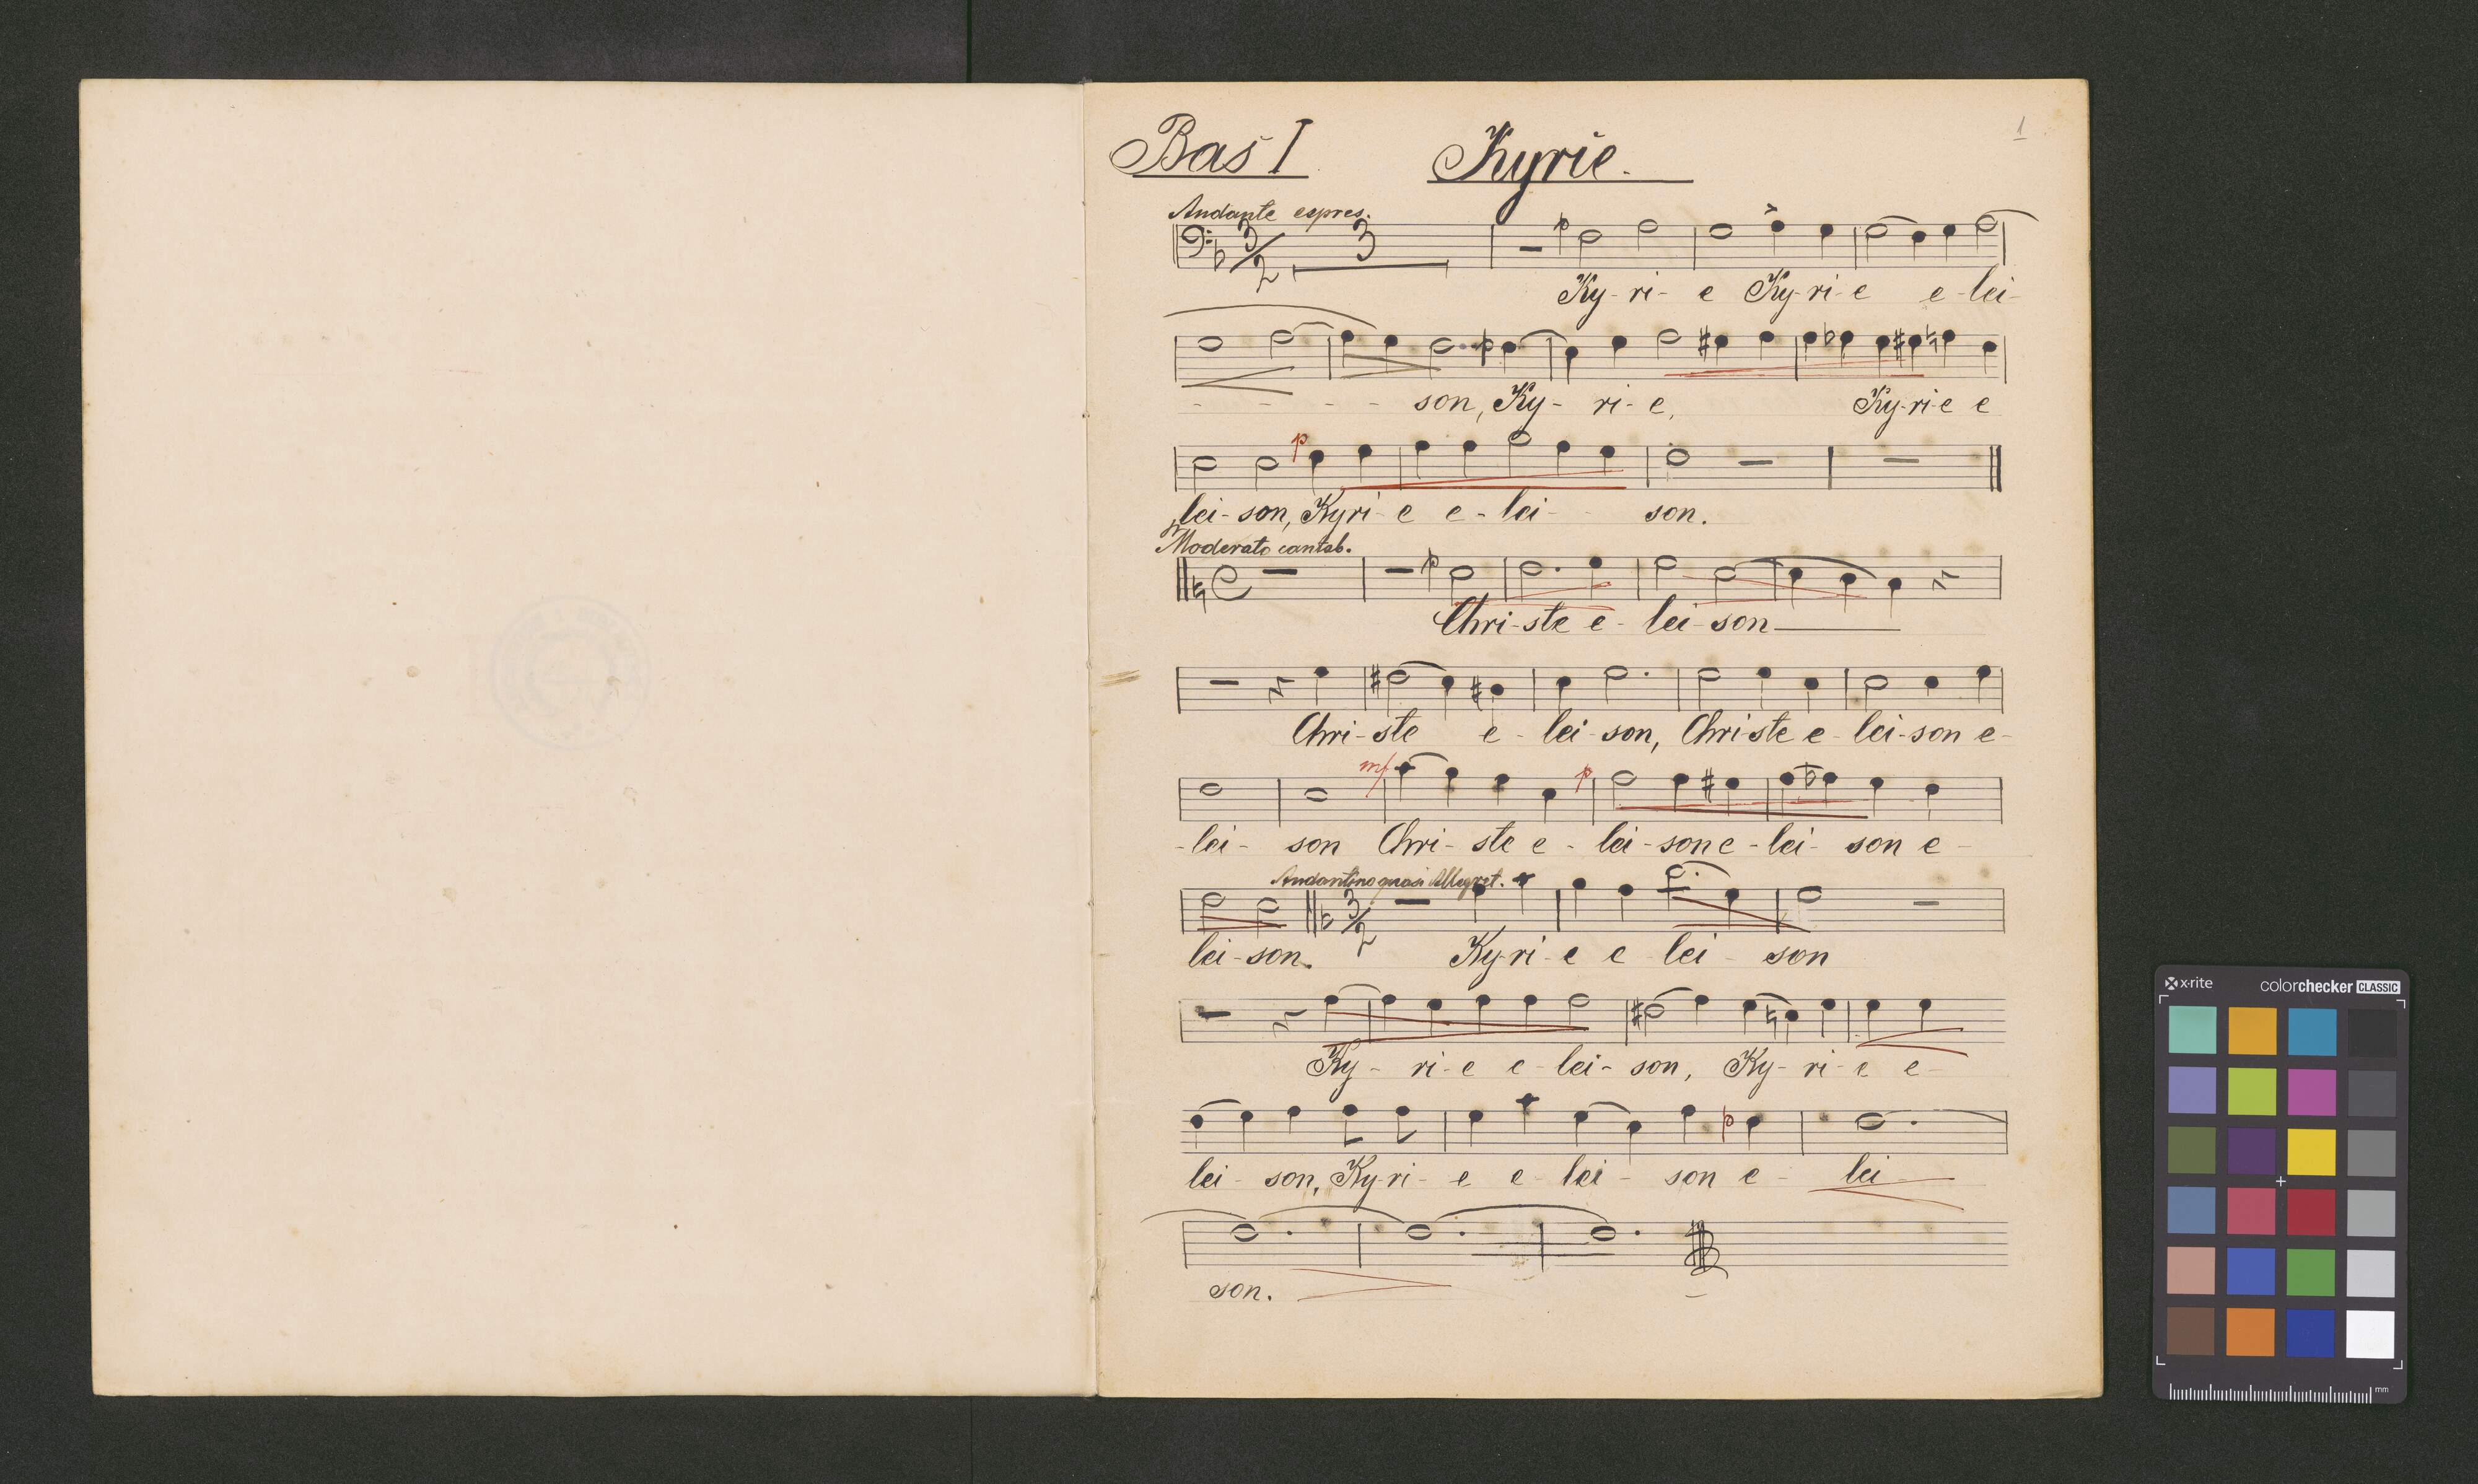 Bas I Kyrie. 1
Andante espres.
3/2 3 p
Ky-ri-e Ky-ri-e e-lei-
p
- - - - - son, Ky-ri-e, Ky-ri-e e
p
lei-son, Kyri-e e-lei- son.
Moderato cantab.
p
Chri-ste e-lei-son
Chri-ste e-lei-son, Chri-ste e-lei-son e-
mf p
-lei-son Chri-ste e-lei-son e-lei-son e-
Andantino quasi Allegret.
3/2
lei-son. Ky-ri-e e lei-son
Ky-ri-e e-lei-son, Ky-ri-e e-
p
lei-son, Ky-ri-e e-lei-son e-lei
son.
x·rite colorchecker CLASSIC
mm